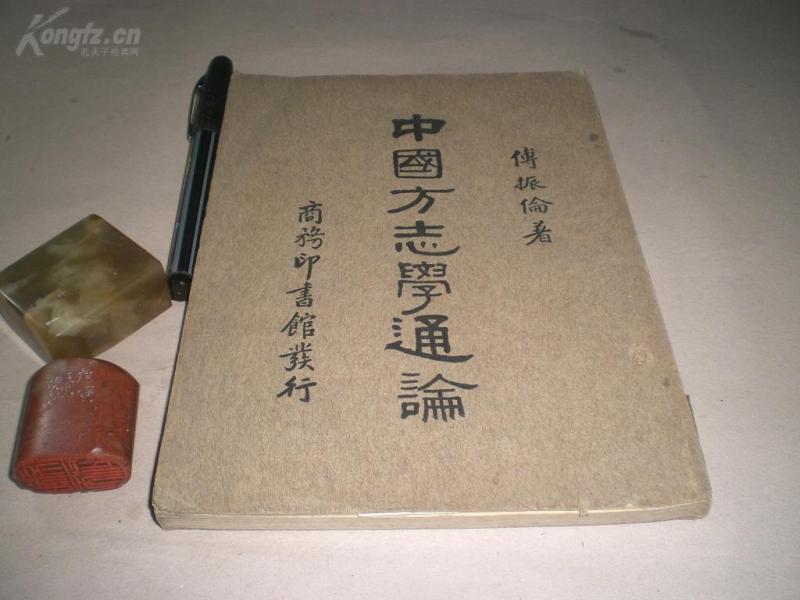 Kongfz.cn
孔夫子拍卖网
傅振倫著
中國方志學通論
商務印書館發行